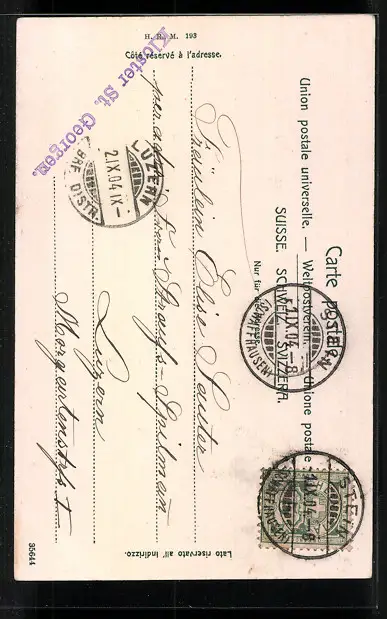 H. R. M. 193
Côté réservé à l'adresse.
Union postale universelle. — Weltpostverein. — Unione postale
Carte postale.
SUISSE. SCHWEIZ. SVIZZERA.
Nur für
Kloster St. Georgen.
STEIN
1.IX.04.-8
STEIN
1.IX.04.-8
(SCHAFFHAUSEN)
LUZERN
2.IX.04.IX-
BRF. DISTR.
Fräulein Elise Sauter
per adr. Frau
Luzern
Lato riservato all' indirizzo.
35644